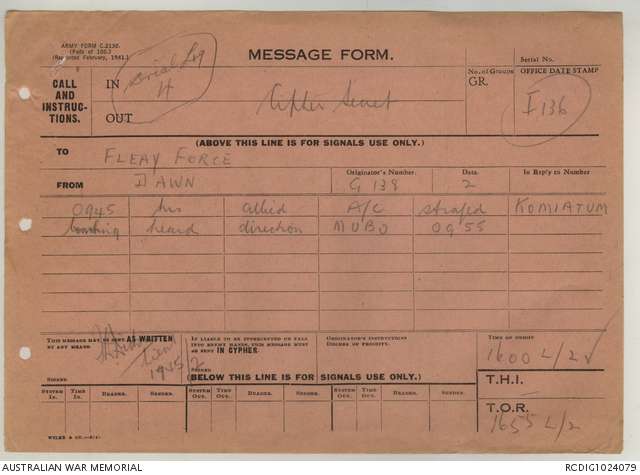 ARMY FORM C.2136.
(Pads of 100.)
(Reprinted February, 1941.)
MESSAGE FORM.
Serial No.
CALL AND INSTRUCTIONS.
IN
OUT
Serial Log
H
Cipher Secret
No. of Groups
GR.
OFFICE DATE STAMP
I 136
(ABOVE THIS LINE IS FOR SIGNALS USE ONLY.)
TO FLEAY FORCE
FROM DAWN
Originator's Number
G 138
Date.
2
In Reply to Number
0945 hrs allied A/C strafed KOMIATUM
bombing heard direction MUBO 0955
THIS MESSAGE MAY BE SENT AS WRITTEN BY ANY MEANS.
IF LIABLE TO BE INTERCEPTED OR FALL INTO ENEMY HANDS, THIS MESSAGE MUST BE SENT IN CYPHER.
ORIGINATOR'S INSTRUCTIONS
DEGREE OF PRIORITY.
TIME OF ORIGIN
1600 L/2
Lieut
1945/2
SIGNED
SIGNED
(BELOW THIS LINE IS FOR SIGNALS USE ONLY.)
T.H.I.
SYSTEM IN. TIME IN. READER. SENDER. SYSTEM OUT. TIME OUT. READER. SENDER. SYSTEM OUT. TIME OUT. READER. SENDER.
T.O.R.
1655 L/2
AUSTRALIAN WAR MEMORIAL
RCDIG1024079